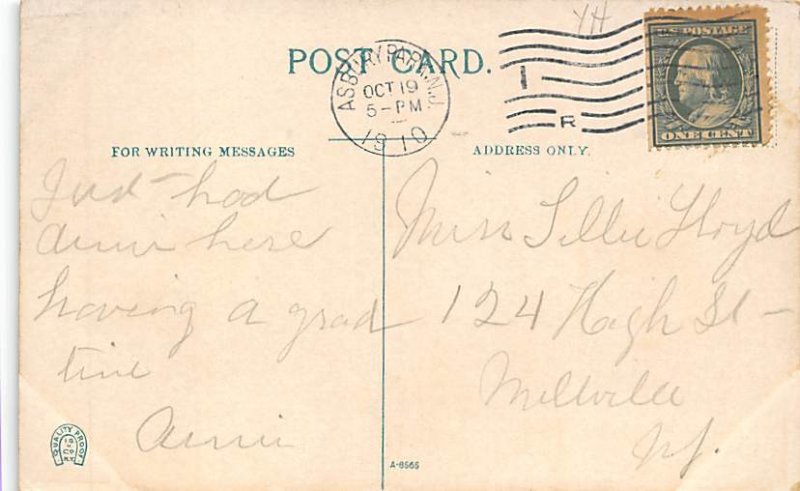 YH
POST CARD.
ASBURY PARK, N.J.
OCT 19
5-PM
1910
1
R
U.S. POSTAGE
ONE CENT
FOR WRITING MESSAGES
Just had
here
having a grad
time
Annie
ADDRESS ONLY.
Miss Lillie Lloyd
124 High St-
Millville
NJ.
QUALITY PROOF
A-8565